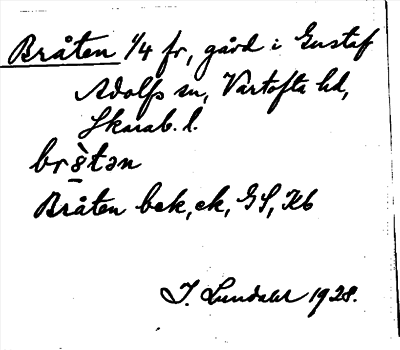 Bråten 1/4 fr, gård i Gustaf
Adolfs sn, Vartofta hd,
Skarab. l.
brå̀tən
Bråten bek, ek, GS, Kb
J. Lundahl 1928.